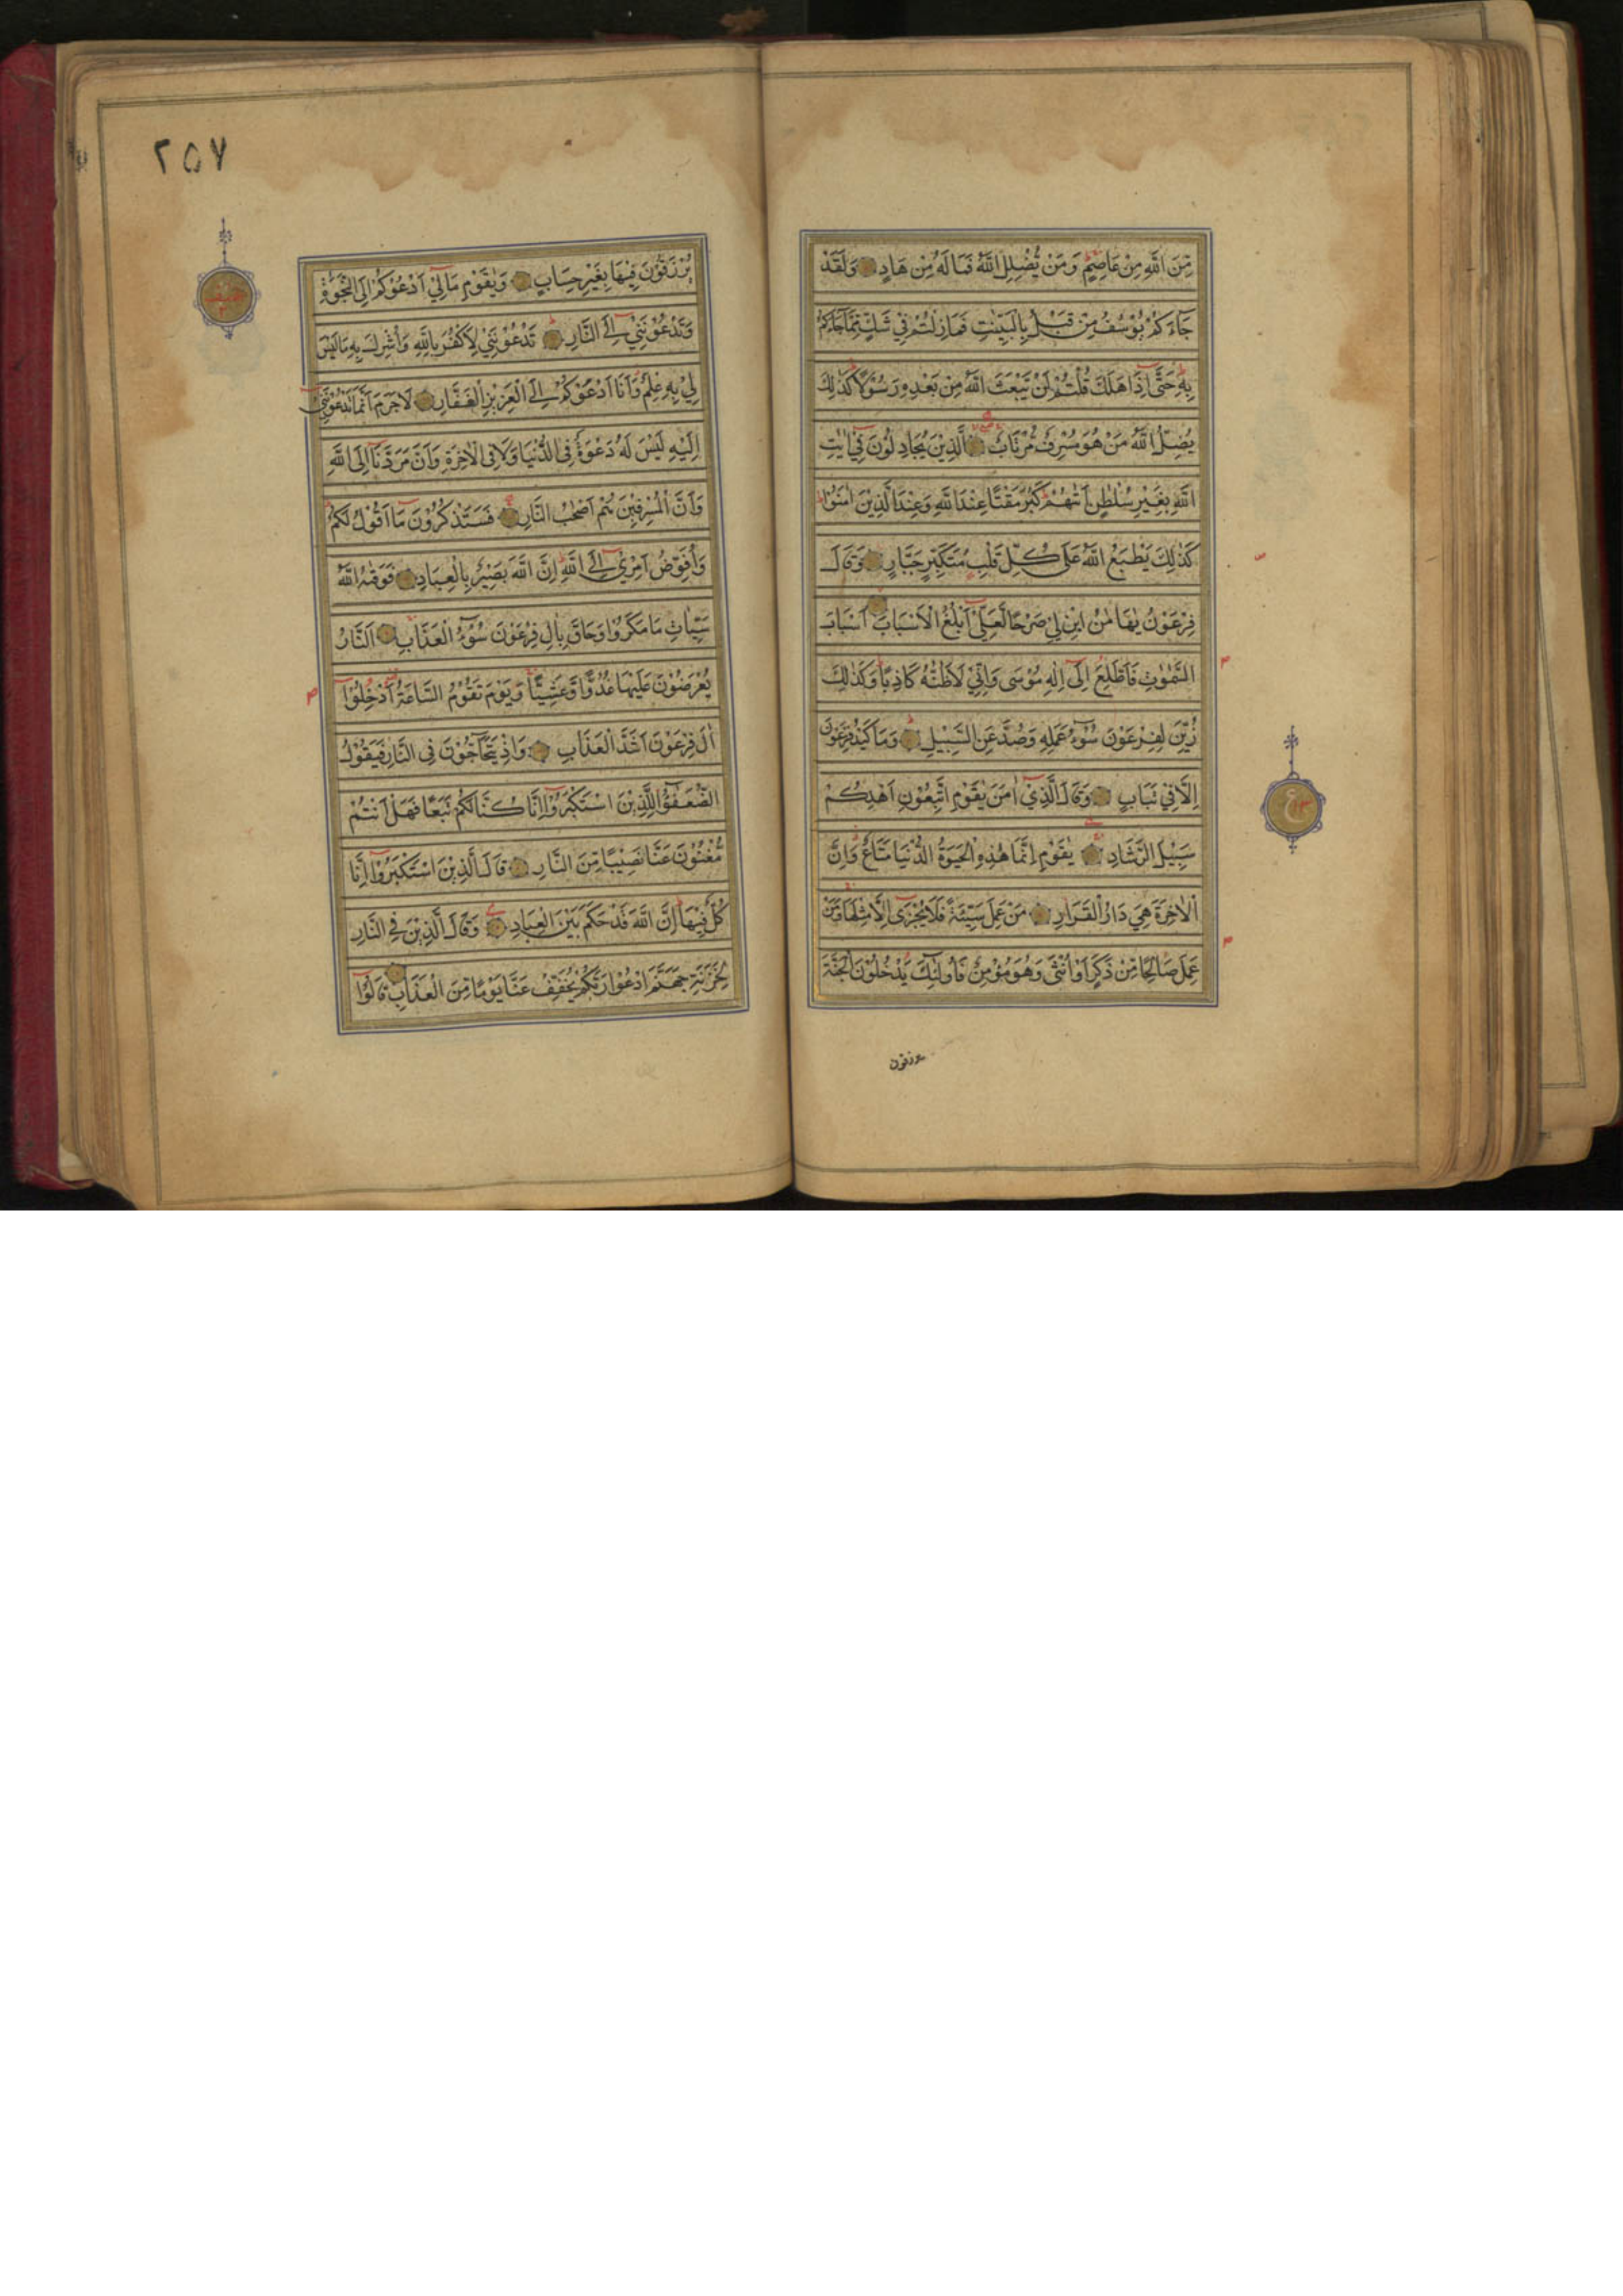 مِنَ اللّٰهِ مِنْ عَاصِمٍ وَمَنْ يُضْلِلِ اللّٰهُ فَمَا لَهُ مِنْ هَادٍ وَلَقَدْ
جَاءَكُمْ يُوْسُفُ مِنْ قَبْلُ بِالْبَيِّنٰتِ فَمَا زِلْتُمْ فِيْ شَكٍّ مِمَّا جَاءَكُمْ
بِهٖ حَتّٰى اِذَا هَلَكَ قُلْتُمْ لَنْ يَبْعَثَ اللّٰهُ مِنْ بَعْدِهٖ رَسُوْلًا كَذٰلِكَ
يُضِلُّ اللّٰهُ مَنْ هُوَ مُسْرِفٌ مُرْتَابٌ الَّذِيْنَ يُجَادِلُوْنَ فِيْ اٰيٰتِ
اللّٰهِ بِغَيْرِ سُلْطٰنٍ اَتٰهُمْ كَبُرَ مَقْتًا عِنْدَ اللّٰهِ وَعِنْدَ الَّذِيْنَ اٰمَنُوْا
كَذٰلِكَ يَطْبَعُ اللّٰهُ عَلٰى كُلِّ قَلْبِ مُتَكَبِّرٍ جَبَّارٍ وَقَالَ
فِرْعَوْنُ يٰهَامٰنُ ابْنِ لِيْ صَرْحًا لَعَلِّيْ اَبْلُغُ الْاَسْبَابَ اَسْبَابَ
السَّمٰوٰتِ فَاَطَّلِعَ اِلٰى اِلٰهِ مُوْسٰى وَاِنِّيْ لَاَظُنُّهُ كَاذِبًا وَكَذٰلِكَ
زُيِّنَ لِفِرْعَوْنَ سُوْءُ عَمَلِهٖ وَصُدَّ عَنِ السَّبِيْلِ وَمَا كَيْدُ فِرْعَوْنَ
اِلَّا فِيْ تَبَابٍ وَقَالَ الَّذِيْ اٰمَنَ يٰقَوْمِ اتَّبِعُوْنِ اَهْدِكُمْ
سَبِيْلَ الرَّشَادِ يٰقَوْمِ اِنَّمَا هٰذِهِ الْحَيٰوةُ الدُّنْيَا مَتَاعٌ وَاِنَّ
الْاٰخِرَةَ هِيَ دَارُ الْقَرَارِ مَنْ عَمِلَ سَيِّئَةً فَلَا يُجْزٰى اِلَّا مِثْلَهَا وَمَنْ
عَمِلَ صَالِحًا مِنْ ذَكَرٍ اَوْ اُنْثٰى وَهُوَ مُؤْمِنٌ فَاُولٰئِكَ يَدْخُلُوْنَ الْجَنَّةَ
يرزقون
٢٥٧
يُرْزَقُوْنَ فِيْهَا بِغَيْرِ حِسَابٍ وَيٰقَوْمِ مَا لِيْ اَدْعُوْكُمْ اِلَى النَّجٰوةِ
وَتَدْعُوْنَنِيْ اِلَى النَّارِ تَدْعُوْنَنِيْ لِاَكْفُرَ بِاللّٰهِ وَاُشْرِكَ بِهٖ مَا لَيْسَ
لِيْ بِهٖ عِلْمٌ وَاَنَا اَدْعُوْكُمْ اِلَى الْعَزِيْزِ الْغَفَّارِ لَاجَرَمَ اَنَّمَا تَدْعُوْنَنِيْ
اِلَيْهِ لَيْسَ لَهُ دَعْوَةٌ فِى الدُّنْيَا وَلَا فِى الْاٰخِرَةِ وَاَنَّ مَرَدَّنَا اِلَى اللّٰهِ
وَاَنَّ الْمُسْرِفِيْنَ هُمْ اَصْحٰبُ النَّارِ فَسَتَذْكُرُوْنَ مَا اَقُوْلُ لَكُمْ
وَاُفَوِّضُ اَمْرِيْ اِلَى اللّٰهِ اِنَّ اللّٰهَ بَصِيْرٌ بِالْعِبَادِ فَوَقٰهُ اللّٰهُ
سَيِّاٰتِ مَا مَكَرُوْا وَحَاقَ بِاٰلِ فِرْعَوْنَ سُوْءُ الْعَذَابِ اَلنَّارُ
يُعْرَضُوْنَ عَلَيْهَا غُدُوًّا وَعَشِيًّا وَيَوْمَ تَقُوْمُ السَّاعَةُ اَدْخِلُوْا
اٰلَ فِرْعَوْنَ اَشَدَّ الْعَذَابِ وَاِذْ يَتَحَاجُّوْنَ فِى النَّارِ فَيَقُوْلُ
الضُّعَفٰؤُا لِلَّذِيْنَ اسْتَكْبَرُوْا اِنَّا كُنَّا لَكُمْ تَبَعًا فَهَلْ اَنْتُمْ
مُغْنُوْنَ عَنَّا نَصِيْبًا مِنَ النَّارِ قَالَ الَّذِيْنَ اسْتَكْبَرُوْا اِنَّا
كُلٌّ فِيْهَا اِنَّ اللّٰهَ قَدْ حَكَمَ بَيْنَ الْعِبَادِ وَقَالَ الَّذِيْنَ فِى النَّارِ
لِخَزَنَةِ جَهَنَّمَ ادْعُوْا رَبَّكُمْ يُخَفِّفْ عَنَّا يَوْمًا مِنَ الْعَذَابِ قَالُوْا